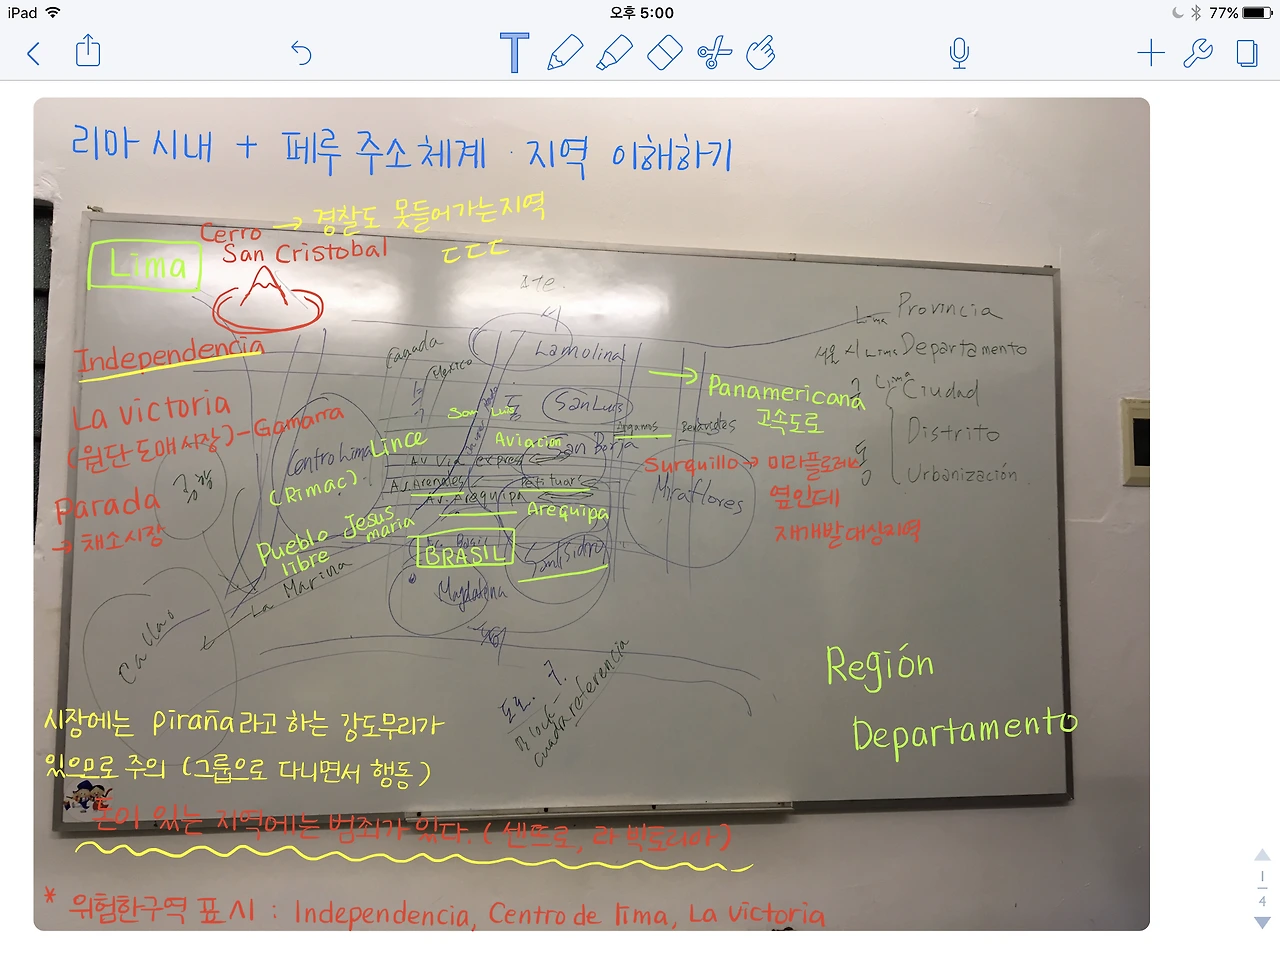 iPad
오후 5:00
77%
리마 시내 + 페루 주소체계 · 지역 이해하기
Cerro → 경찰도 못들어가는지역
San Cristobal ㄷㄷㄷ
Lima
Ate.
Lima Provincia
Independencia
Cañada
Mexico
Lamolina
서울시 Lima Departamento
→ Panamericana
고속도로
Lima Ciudad
La victoria
(원단 도매시장) - Gamarra
San Luis
San Luis
Distrito
Centro Lima
Lince
Aviación
San Borja
Angamos
Benavides
공항
(Rimac)
Av. Via expres
Av. Arenales
Petit tuars
Av. Arequipa
Arequipa
Surquillo → 미라플로레스
옆인데
재개발대상지역
Miraflores
Urbanización
Parada
→ 채소시장
Pueblo libre
Jesus maria
BRASIL
San Isidro
La Marina
Magdalena
Callao
Block
cuadra
referencia
Región
Departamento
시장에는 piraña라고 하는 강도무리가
있으므로 주의 (그룹으로 다니면서 행동)
돈이 있는 지역에는 범죄가 있다. (센뜨로, 라 빅토리아)
* 위험한구역 표시 : Independencia, Centro de lima, La victoria
1
4